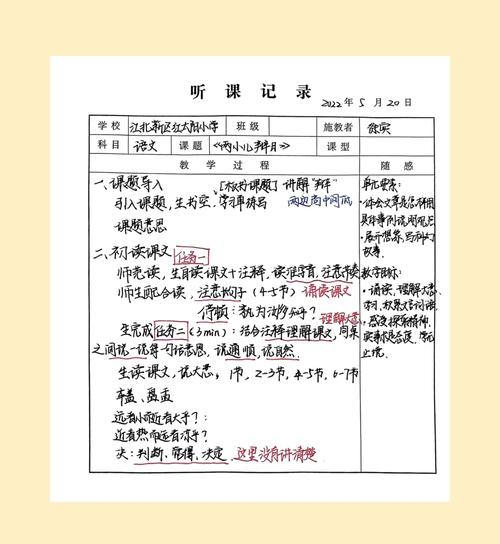 听课记录
2022年5月20日
学校 江北新区江太阳小学 班级 施教者 徐宾
科目 语文 课题 《两小儿辩日》 课型
教学过程 随感
一、课题导入 【板书课题】讲解“辩”
引入课题，生书空，学习单练写 两边高中间低
课题意思
二、初读课文 任务一
师范读，生自读课文+注释，读准字音，注意停顿
师生配合读，注意句子(4-5节) 诵读课文
停顿：孰为汝多知乎？ 理解大意
生完成任务二(3min)：结合注释理解课文，同桌
之间说一说每句话意思，说通顺，说自然。
生读课文，说大意，1节，2-3节，4-5节，6-7节
车盖、盘盂
远者小而近者大乎？：
近者热而远者凉乎？
决：判断、觉得、决定 这里没有讲清楚
单元要素：
·体会文章是怎样用
具体事例说明观点
·展开想象，写科幻
故事。
教学目标：
·诵读，理解大意
·感受探索精神，
实事求是态度，学无
止境。